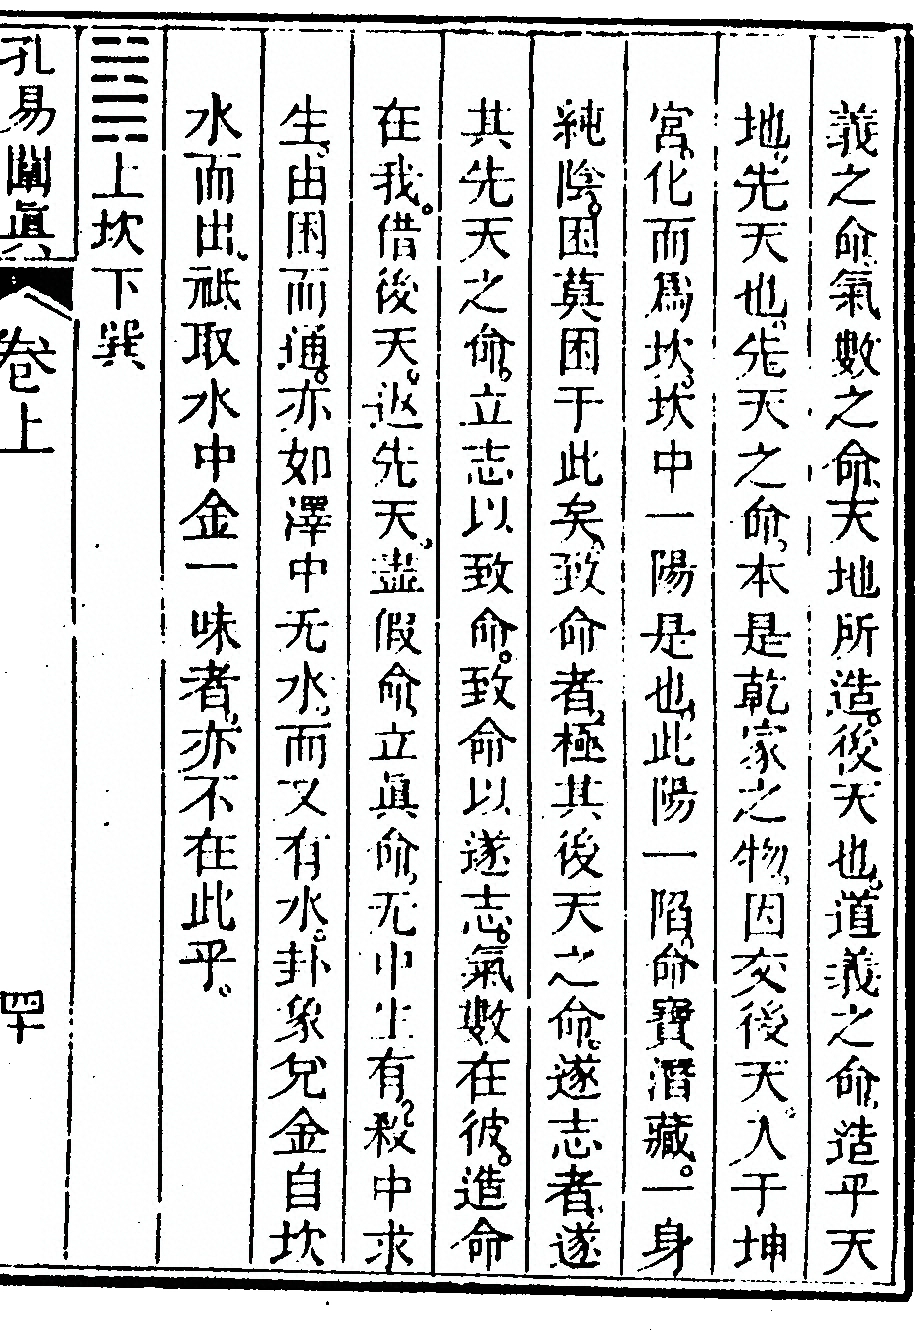 義之命、氣數之命、天地所造。後天也。道義之命、造乎天
地、先天也、先天之命、本是乾家之物、因交後天。入于坤
宮、化而爲坎、坎中一陽是也、此陽一陷、命寶潛藏。一身
純陰。困莫困于此矣、致命者、極其後天之命。遂志者、遂
其先天之命。立志以致命。致命以遂志。氣數在彼。造命
在我。借後天。返先天、盡假命、立眞命、无中生有、殺中求
生、由困而通。亦如澤中无水、而又有水。卦象兌金自坎
水而出、祇取水中金一味者、亦不在此乎。
䷯上坎下巽
孔易闡眞 卷上 四十